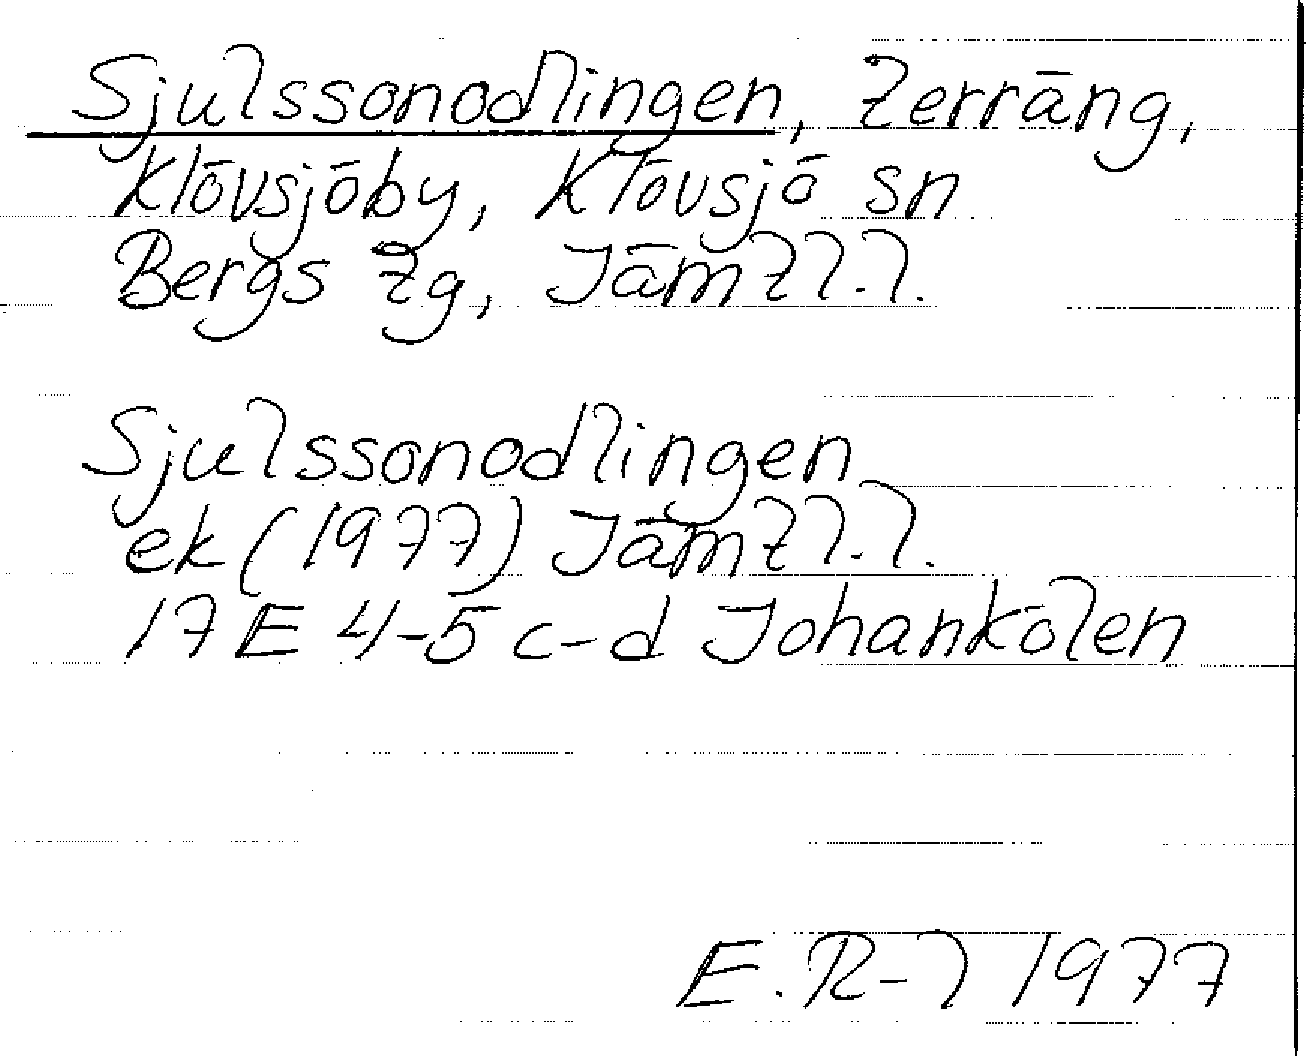 Sjulssonodlingen, terräng,
Klövsjöby, Klövsjö sn
Bergs tg, Jämtl. l.
Sjulssonodlingen
ek (1977) Jämtl. l.
17 E 4-5 c-d Johankölen
E. R-l 1977